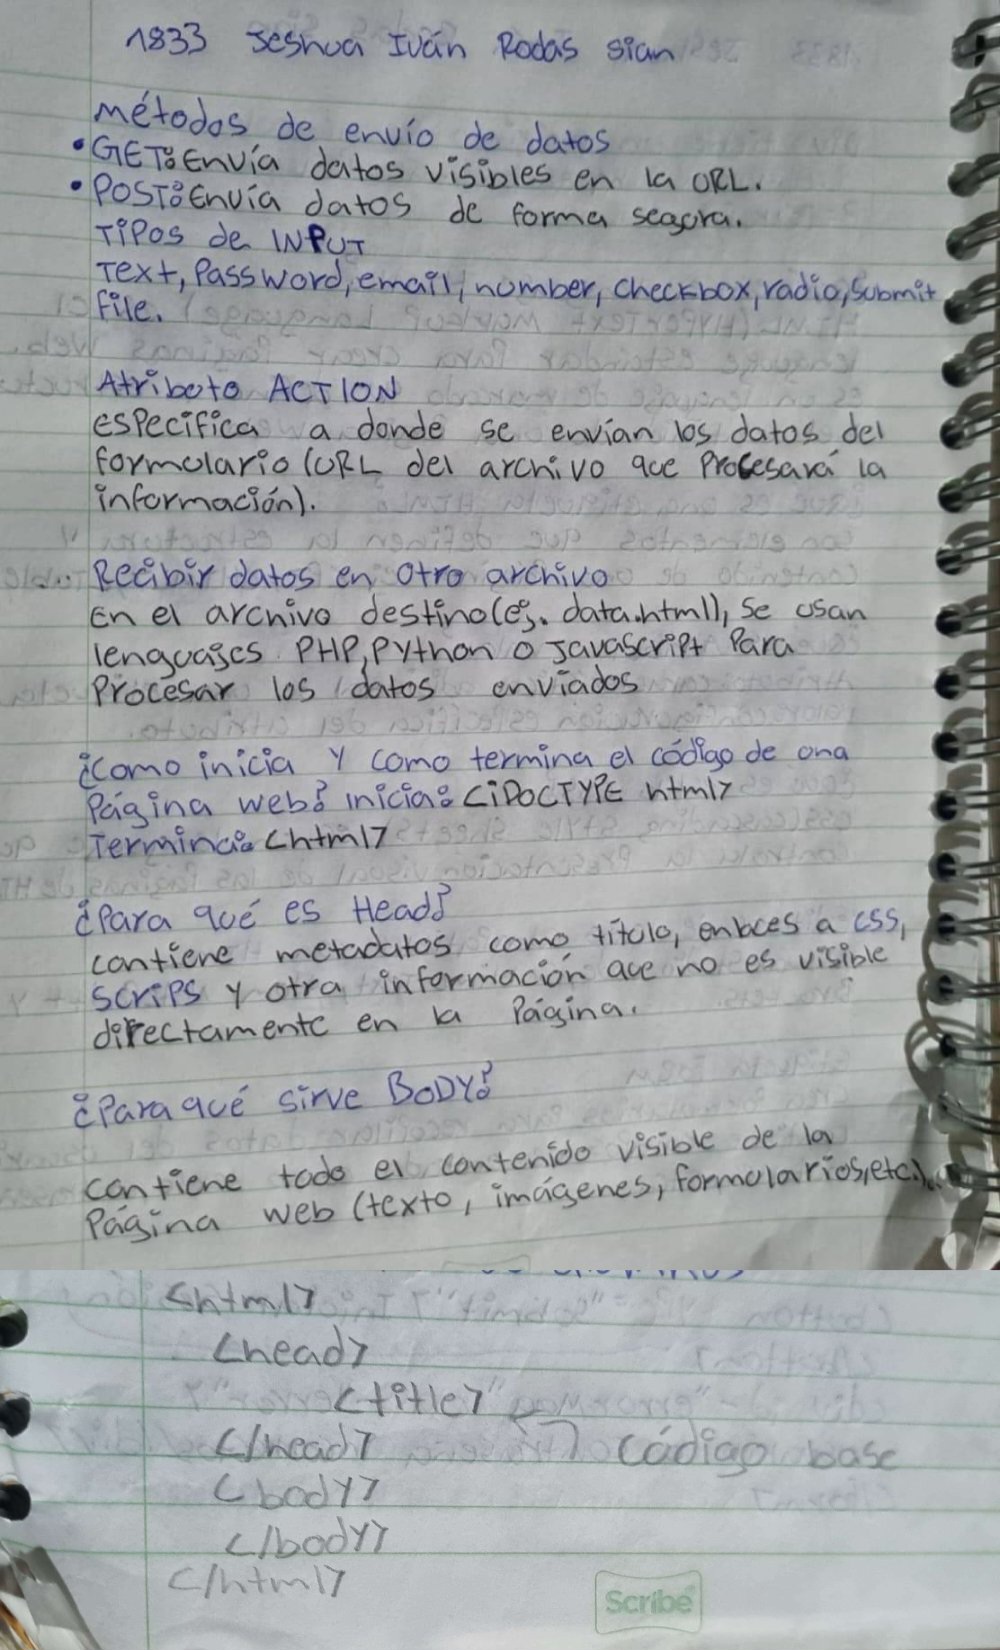 1833 Jeshua Iván Rodas Sian
Métodos de envío de datos
• GET: Envía datos visibles en la URL.
• POST: Envía datos de forma segura.
Tipos de INPUT
Text, Password, email, number, checkbox, radio, submit
file.
Atributo ACTION
especifica a donde se envían los datos del
formulario (URL del archivo que Procesará la
información).
Recibir datos en otro archivo
En el archivo destino (ej. data.html), se usan
lenguajes PHP, Python o Javascript Para
Procesar los datos envíados
¿Como inicia y como termina el código de una
Página web? inicia: <¡DOCTYPE html>
Termina: <html>
¿Para qué es Head?
contiene metadatos como título, enlaces a CSS,
scrips y otra información que no es visible
directamente en la Página.
¿Para qué sirve BODY?
contiene todo el contenido visible de la
Página web (texto, imágenes, formularios, etc.).
<html>
<head>
<title>
</head> código base
<body>
</body>
</html>
Scribe